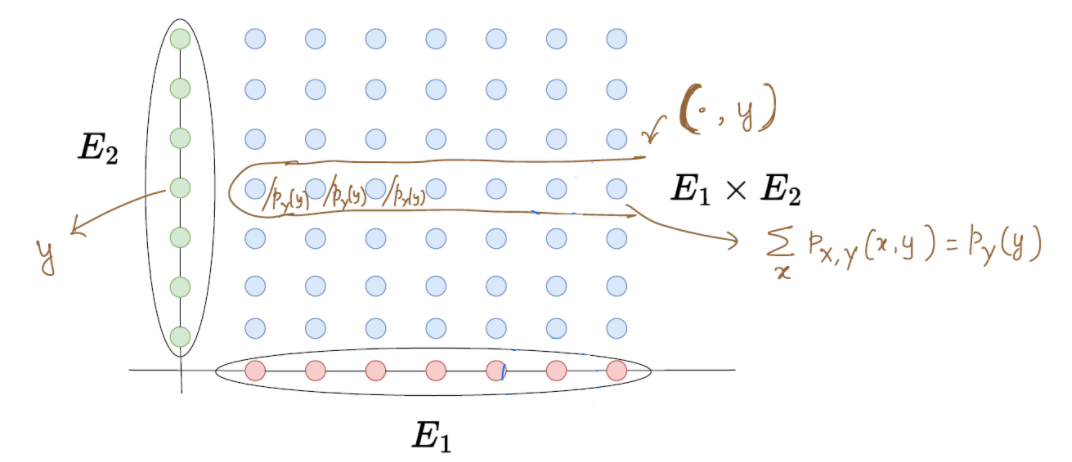 (·, y)
E₂
/p_y(y) /p_y(y) /p_y(y)
E₁ × E₂
y
∑_x p_{X,Y}(x,y) = p_y(y)
E₁